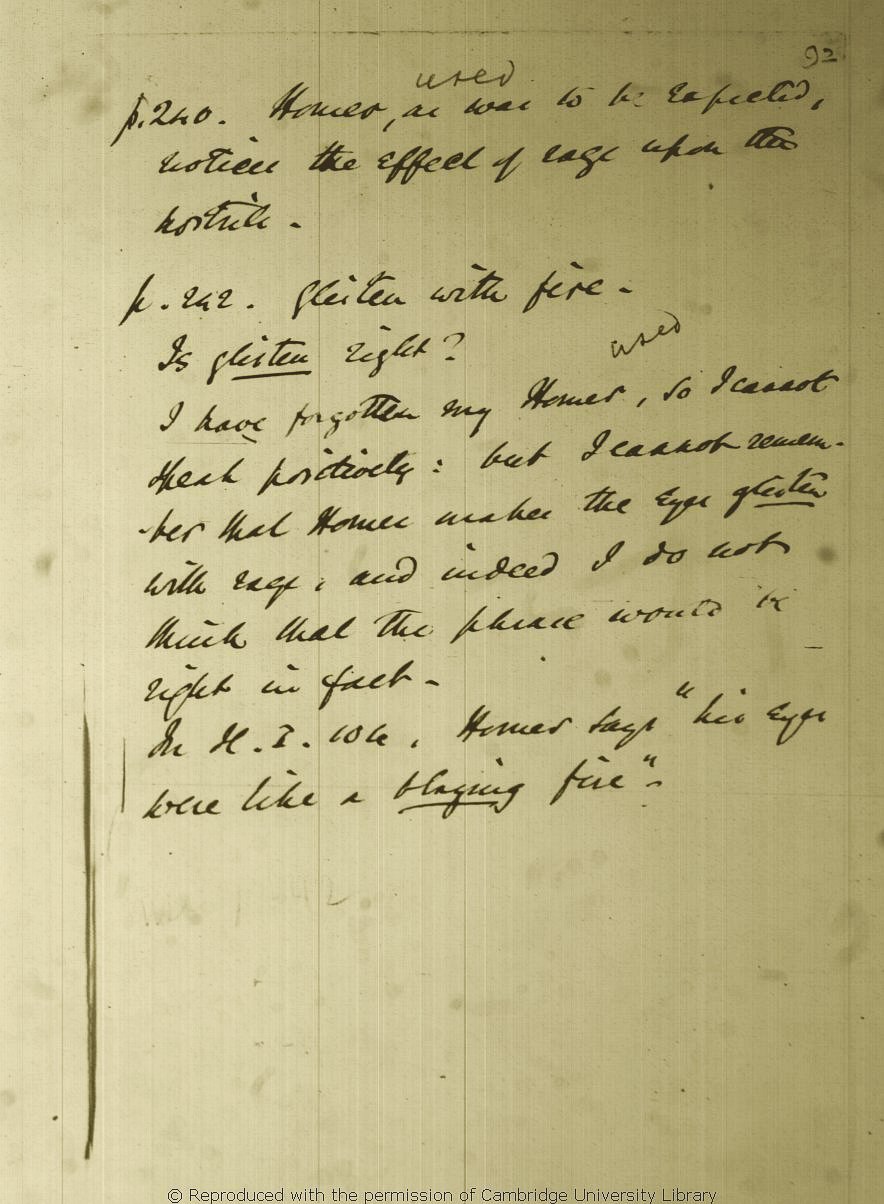 92
used
p. 240. Homer, as was to be expected,
notices the effect of rage upon the
nostrils -
p. 242. glisten with fire -
Is glisten right?
used
I have forgotten my Homer, so I cannot
speak positively: but I cannot remem-
-ber that Homer makes the eyes glisten
with rage, and indeed I do not
think that the phrase would be
right in fact -
In Il. I. 104, Homer says "his eyes
were like a blazing fire" -
© Reproduced with the permission of Cambridge University Library